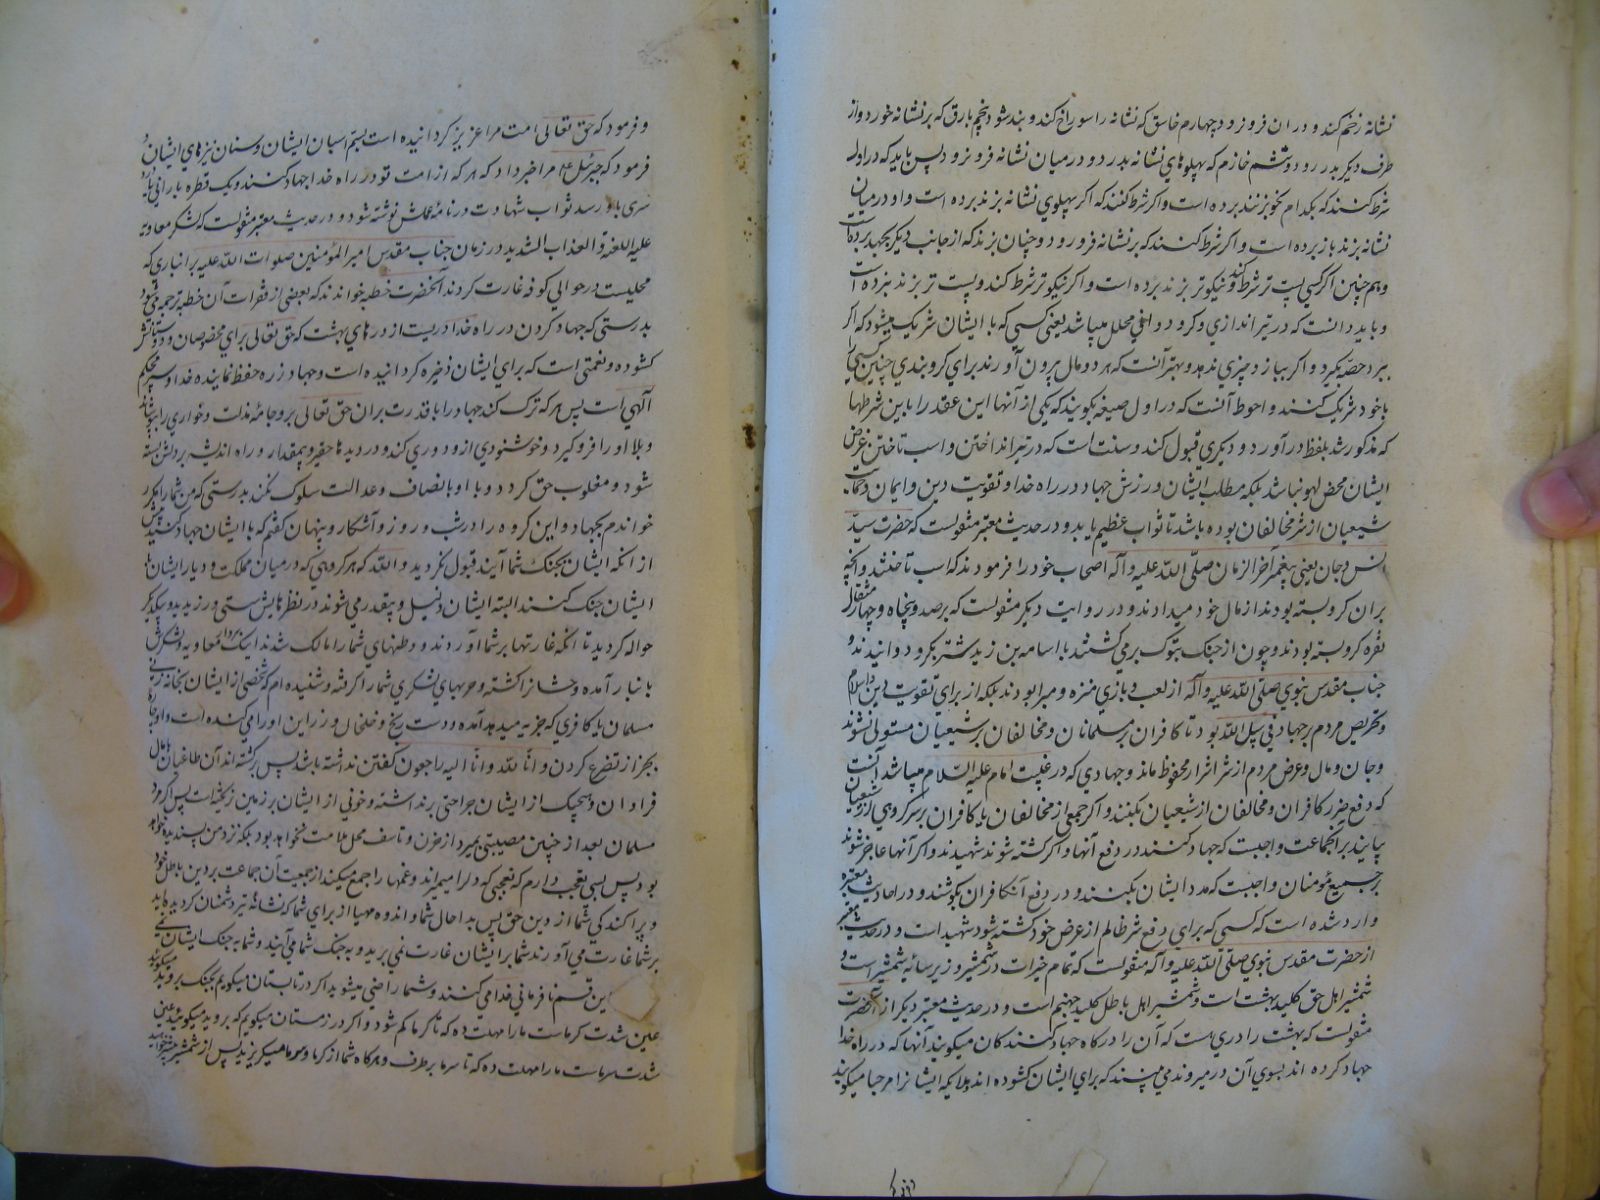 نشانه زخم کند و در ان فرو نرود چهارم خاسق که نشانه را سوراخ کند و بند شود پنجم مارق که بر نشانه خورد و از
طرف دیگر بدر رود و ششم خازم که پهلوهای نشانه بدرد و در میان نشانه فرو نرود پس باید که در اول
شرط کنند که بکدام نحو بزنند برده است و اگر شرط کنند که اگر بپهلوی نشانه بزند برده است و او در میان
نشانه بزند باز برده است و اگر شرط کنند که بر نشانه فرو رود و چنان بزند که از جانب دیگر بجهد برده است
و هم چنین اگر کسی پست تر شرط کند و نیکوتر بزند برده است و اگر نیکوتر شرط کند و پست تر بزند نبرده است
و باید دانست که در تیراندازی و گرو دوانی محلل میباشد یعنی کسی که با ایشان شریک میشود که اگر
ببرد حصه بگیرد و اگر ببازد چیزی ندهد و بهتر آنست که هر دو مال بیرون آورند برای گروبندی چنین کسی را
با خود شریک کنند و احوط آنست که در اول صیغه بگویند که یکی از آنها این عقد را باین شرطها
که مذکور شد بلفظ درآورد و دیگری قبول کند و سنت است که در تیر انداختن و اسب تاختن غرض
ایشان محض لهو نباشد بلکه مطلب ایشان ورزش جهاد در راه خدا و تقویت دین و ایمان و حمایت
شیعیان از شر مخالفان بوده باشد تا ثواب عظیم یابد و در حدیث معتبر منقولست که حضرت سید
انس و جان یعنی پیغمبر آخر الزمان صلی الله علیه و آله اصحاب خود را فرمودند که اسب تاختند و آنچه
بر ان گرو بسته بودند از مال خود میدادند و در روایت دیگر منقولست که بر صد و پنجاه و چهار مثقال
نقره گرو بسته بودند و چون از جنگ تبوک برمی گشتند با اسامه بن زید شتر بگرو دوانیدند و
جناب مقدس نبوی صلی الله علیه و آله از لعب و بازی منزه و مبرا بودند بلکه از برای تقویت دین و اسلام
و تحریص مردم بر جهاد فی سبیل الله بود تا کافران بر مسلمانان و مخالفان بر شیعیان مستولی نشوند
و جان و مال و عرض مردم از شر اشرار محفوظ ماند و جهادی که در غیبت امام علیه السلام میباشد آنست
که دفع ضرر کافران و مخالفان از شیعیان بکنند و اگر جمعی از مخالفان یا کافران بر سر گروهی از شیعیان
بیایند بر آنجماعت واجبست که جهاد کنند در دفع آنها و اگر کشته شوند شهیدند و اگر آنها عاجز شوند
بر جمیع مؤمنان واجبست که مدد ایشان بکنند و در دفع آن کافران بکوشند و در احادیث معتبره
وارد شده است که کسی که برای دفع شر ظالم از عرض خود کشته شود شهید است و در حدیث معتبر
از حضرت مقدس نبوی صلی الله علیه و آله منقولست که تمام خیرات در شمشیر و زیر سایه شمشیر است و
شمشیر اهل حق کلید بهشت است و شمشیر اهل باطل کلید جهنم است و در حدیث معتبر دیگر از آنحضرت
منقولست که بهشت را دری هست که آن را درگاه جهادکنندگان میگویند آنها که در راه خدا
جهاد کرده اند بسوی آن در میروند می بینند که برای ایشان گشوده اند ملایکه ایشانرا مرحبا میگویند
و فرمود که حق تعالی امت مرا عزیز گردانیده است بسم اسبان ایشان و سنان نیزهای ایشان و
فرمود که جبرئیل مرا خبر داد که هر که از امت تو در راه خدا جهاد کنند و یک قطره بارانی یا درد
سری باو رسد ثواب شهادت در نامه عملش نوشته شود و در حدیث معتبر منقولست که لشکر معاویه
علیه اللعنة و العذاب الشدید در زمان جناب مقدس امیر المؤمنین صلوات الله علیه بر انباری که
محلیست در حوالی کوفه غارت کردند آنحضرت خطبه خواندند که بعضی از فقرات آن خطبه ترجمه می شود
بدرستی که جهاد کردن در راه خدا دریست از درهای بهشت که حق تعالی برای مخصوصان و دوستانش
گشوده و نعمتی است که برای ایشان ذخیره گردانیده است و جهاد زره حفظ نماینده خدا و سپر محکم
آلهی است پس هر که ترک کند جهاد را با قدرت بران حق تعالی بر او جامه مذلت و خواری را بپوشاند
و بلا او را فرو گیرد و خوشنودی از او دوری کند و در دیدها حقیر و بیمقدار و راه اندیشه بر دلش بسته
شود و مغلوب حق گردد و با او بانصاف و عدالت سلوک نکنند بدرستی که من شما را مکرر
خواندم بجهاد و این گروه را در شب و روز و آشکار و پنهان گفتم که با ایشان جهاد کنید پیش
از آنکه ایشان بجنگ شما آیند قبول نکردید والله که هر گروهی که در میان مملکت و دیار ایشان با
ایشان جنگ کنند البته ایشان ذلیل و بیقدر می شوند در نظرها پس سستی ورزیدید و بیکدیگر
حواله کردید تا آنکه غارتها بر شما آوردند و وطنهای شما را مالک شدند اینک معاویه لشکرش
بانبار آمده و حسانرا کشته و حربهای لشکری شما را گرفته و شنیده ام که شخصی از ایشان بخانه زنی
مسلمان یا کافری که جزیه میدهد آمده و دست رنج و خلخال و زر این او را می کنده است و او چاره
بجز از تضرع کردن و انا لله و انا الیه راجعون گفتن نداشته باشد پس برگشته اند آن طاغیان با مال
فراوان و هیچیک از ایشان جراحتی بر نداشته و خونی از ایشان بر زمین نریخته است پس اگر مرد
مسلمان بعد از چنین مصیبتی بمیرد از حزن و تاسف محل ملامت نخواهد بود بلکه نزد من پسندیده خواهد
بود پس بسی تعجب دارم که تعجبی که دلرا میمیراند و غمها را جمع میکند از جمعیت آن جماعت بر دین باطل خود
و پراکندگی شما از دین حق پس بدا حال شما و اندوه مهیا از برای شما که نشانه تیر دشمنان گردیده اید
بر شما غارت می آورند شما بر ایشان غارت نمی برید و به جنگ شما می آیند و شما به جنگ ایشان نمی
این قسم نافرمانی خدا می کنند و شما راضی میشوید اگر در تابستان میگویم بجنگ بروید میگویید
عین شدت گرماست ما را مهلت ده که تا گرما کم شود و اگر در زمستان میگویم که بروید میگویید عین
شدت سرماست ما را مهلت ده که تا سرما برطرف و هرگاه شما از گرما و سرما میگریزید پس از شمشیر بیشتر خواهید